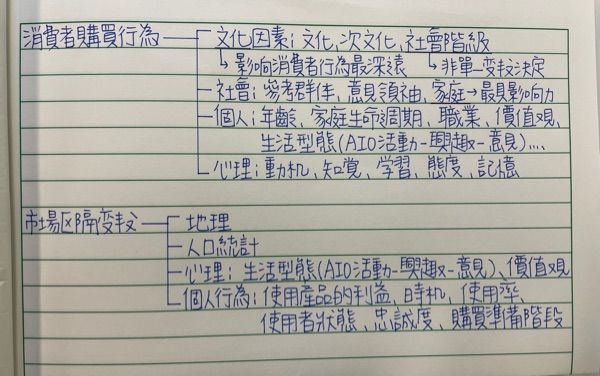 消費者購買行為 文化因素：文化、次文化、社會階級
↳影响消費者行為最深遠 ↳非單一变數決定
社會：參考群体、意見領袖、家庭→最具影响力
個人：年齡、家庭生命週期、職業、價值观、
生活型態(AIO活動-興趣-意見)....
心理：動机、知覺、學習、態度、記憶
市場区隔变數 地理
人口統計
心理：生活型態(AIO活動-興趣-意見)、價值观
個人行為：使用產品的利益、時机、使用率、
使用者狀態、忠誠度、購買準備階段